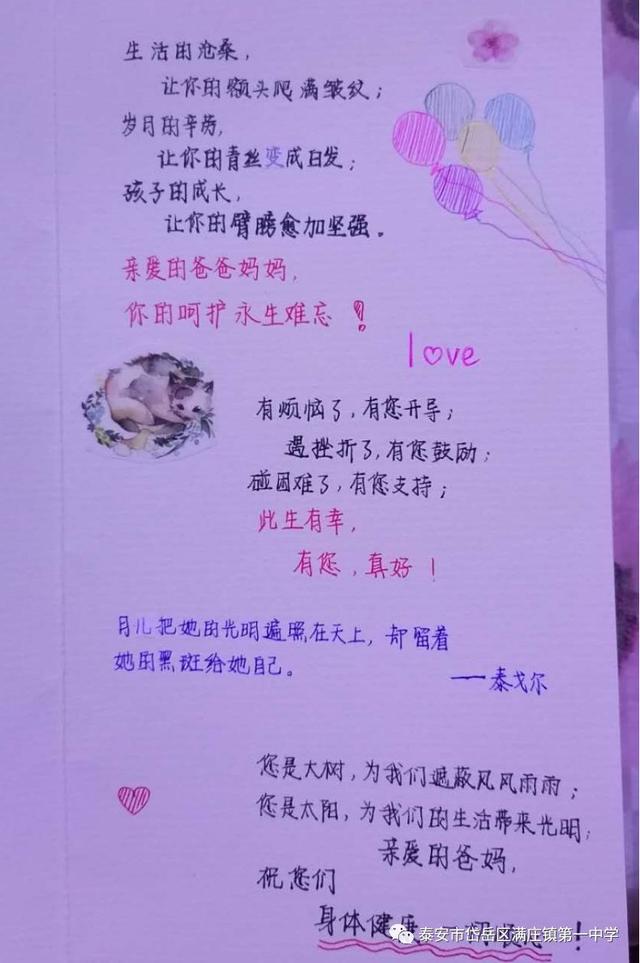 生活的沧桑，
让你的额头爬满皱纹；
岁月的辛苦，
让你的青丝变成白发；
孩子的成长，
让你的臂膀愈加坚强。
亲爱的爸爸妈妈，
你的呵护永生难忘！
love
有烦恼了，有您开导；
遇挫折了，有您鼓励；
碰困难了，有您支持；
此生有幸，
有您，真好！
月儿把她的光明遍照在天上，却留着
她的黑斑给她自己。
——泰戈尔
您是大树，为我们遮蔽风风雨雨；
您是太阳，为我们的生活带来光明；
亲爱的爸妈，
祝您们
身体健康 ！
泰安市岱岳区满庄镇第一中学